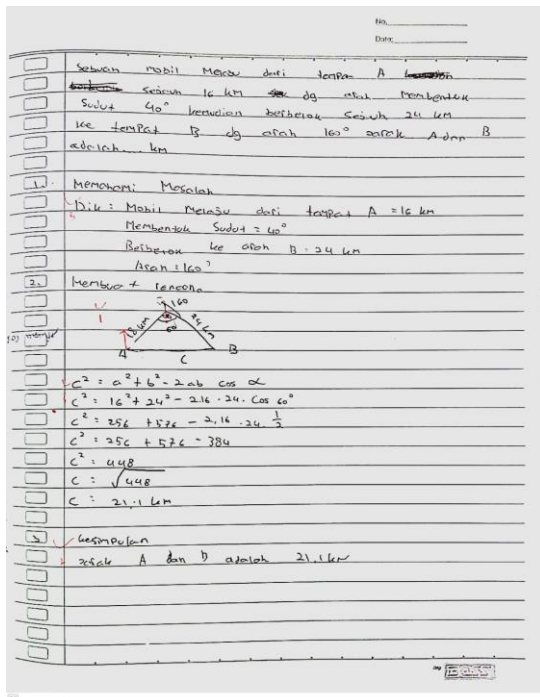 No.
Date:
Sebuah mobil Melaju dari tempat A
sejauh 16 km dg arah Membentuk
Sudut 40° kemudian berbelok sejauh 24 km
ke tempat B dg arah 160° Jarak A dan B
adalah km
1. Memahami Masalah
Dik : Mobil Melaju dari tempat A = 16 km
Membentuk Sudut = 40°
Berbelok ke arah B = 24 km
Arah = 160°
2. Membuat rencana
160
16 km 60 24 km
A C B
c² = a² + b² - 2ab cos α
c² = 16² + 24² - 2.16 . 24 . Cos 60°
c² = 256 + 576 - 2,16 . 24 . 1/2
c² = 256 + 576 - 384
c² = 448
c = √448
c = 21.1 km
3. kesimpulan
Jarak A dan B adalah 21,1 km